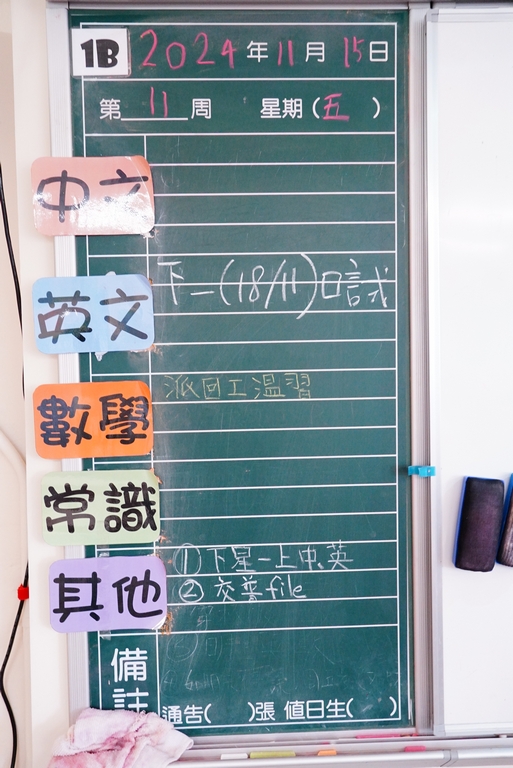 1B 2024年11月15日
第11周 星期(五)
中文
英文 下一(18/11)口試
數學 派回工溫習
常識
其他 ①下星一上中、英
②交普file
備註 通告( )張 值日生( )